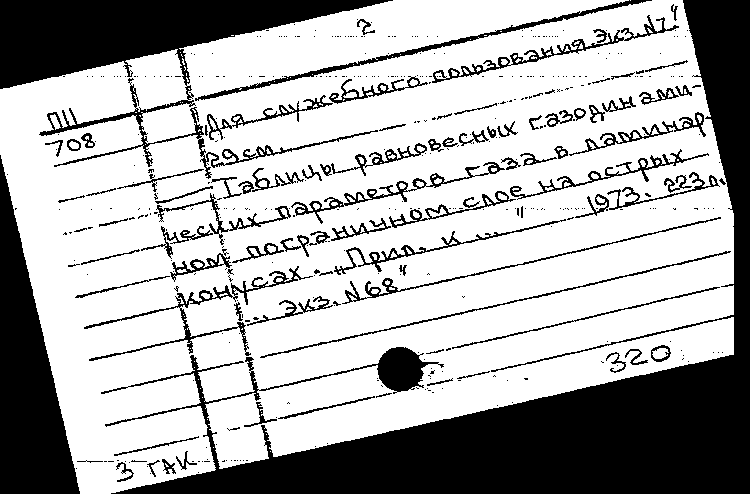 2
ПII
708
"Для служебного пользования. Экз. N7."
29 см.
Таблицы равновесных газодинами-
ческих параметров газа в ламинар-
ном пограничном слое на острых
конусах. "Прил. к ... " 1973. 223 л.
... Экз. N68"
320
3 ГАК